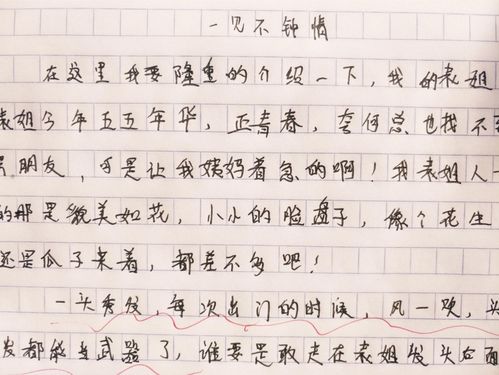 一见不钟情
在这里我要隆重的介绍一下,我的表姐
表姐今年五五年华,正青春,奈何总也找不到
男朋友,可是让我姨妈着急的啊!我表姐人
的那是貌美如花,小小的脸盘子,像个花生
还是瓜子来着,都差不多吧!
一头秀发,每次出门的时候,风一吹,头
发都能当武器了,谁要是敢走在表姐发头右面